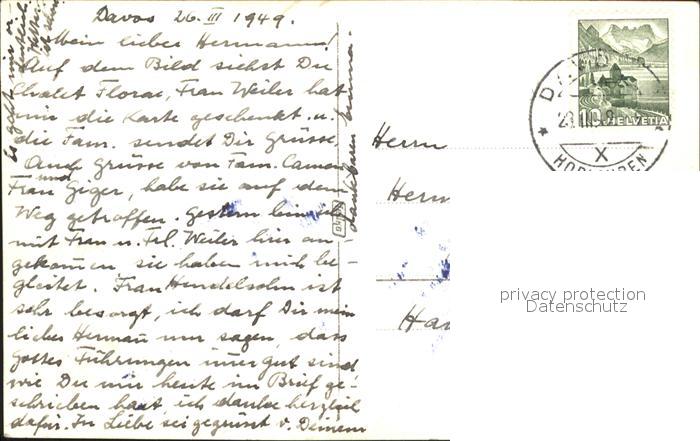 Davos 26. III 1949.
Mein lieber Hermann!
Auf dem Bild siehst Du
Chalet Florae, Frau Weiler hat
mir die Karte geschenkt u.
die Fam. sendet Dir Grüsse,
Auch Grüsse von Fam.
und
Frau Geiger, habe sie auf dem
Weg getroffen. Gestern bin ich
mit Frau u. Frl. Weiler hier an
gekommen, sie haben mich be-
gleitet. Frau Hendelsohn ist
sehr besorgt, ich darf Dir mein
lieber Hermann nur sagen, dass
Gottes Führungen immer gut sind
wie Du mir heute im Brief ge-
schrieben hast, ich danke herzlich
dafür. In Liebe sei gegrüsst v. Deinem
dankbaren Emma.
Es geht mir
Herrn
Herm
Ha
10 HELVETIA
X
privacy protection
Datenschutz